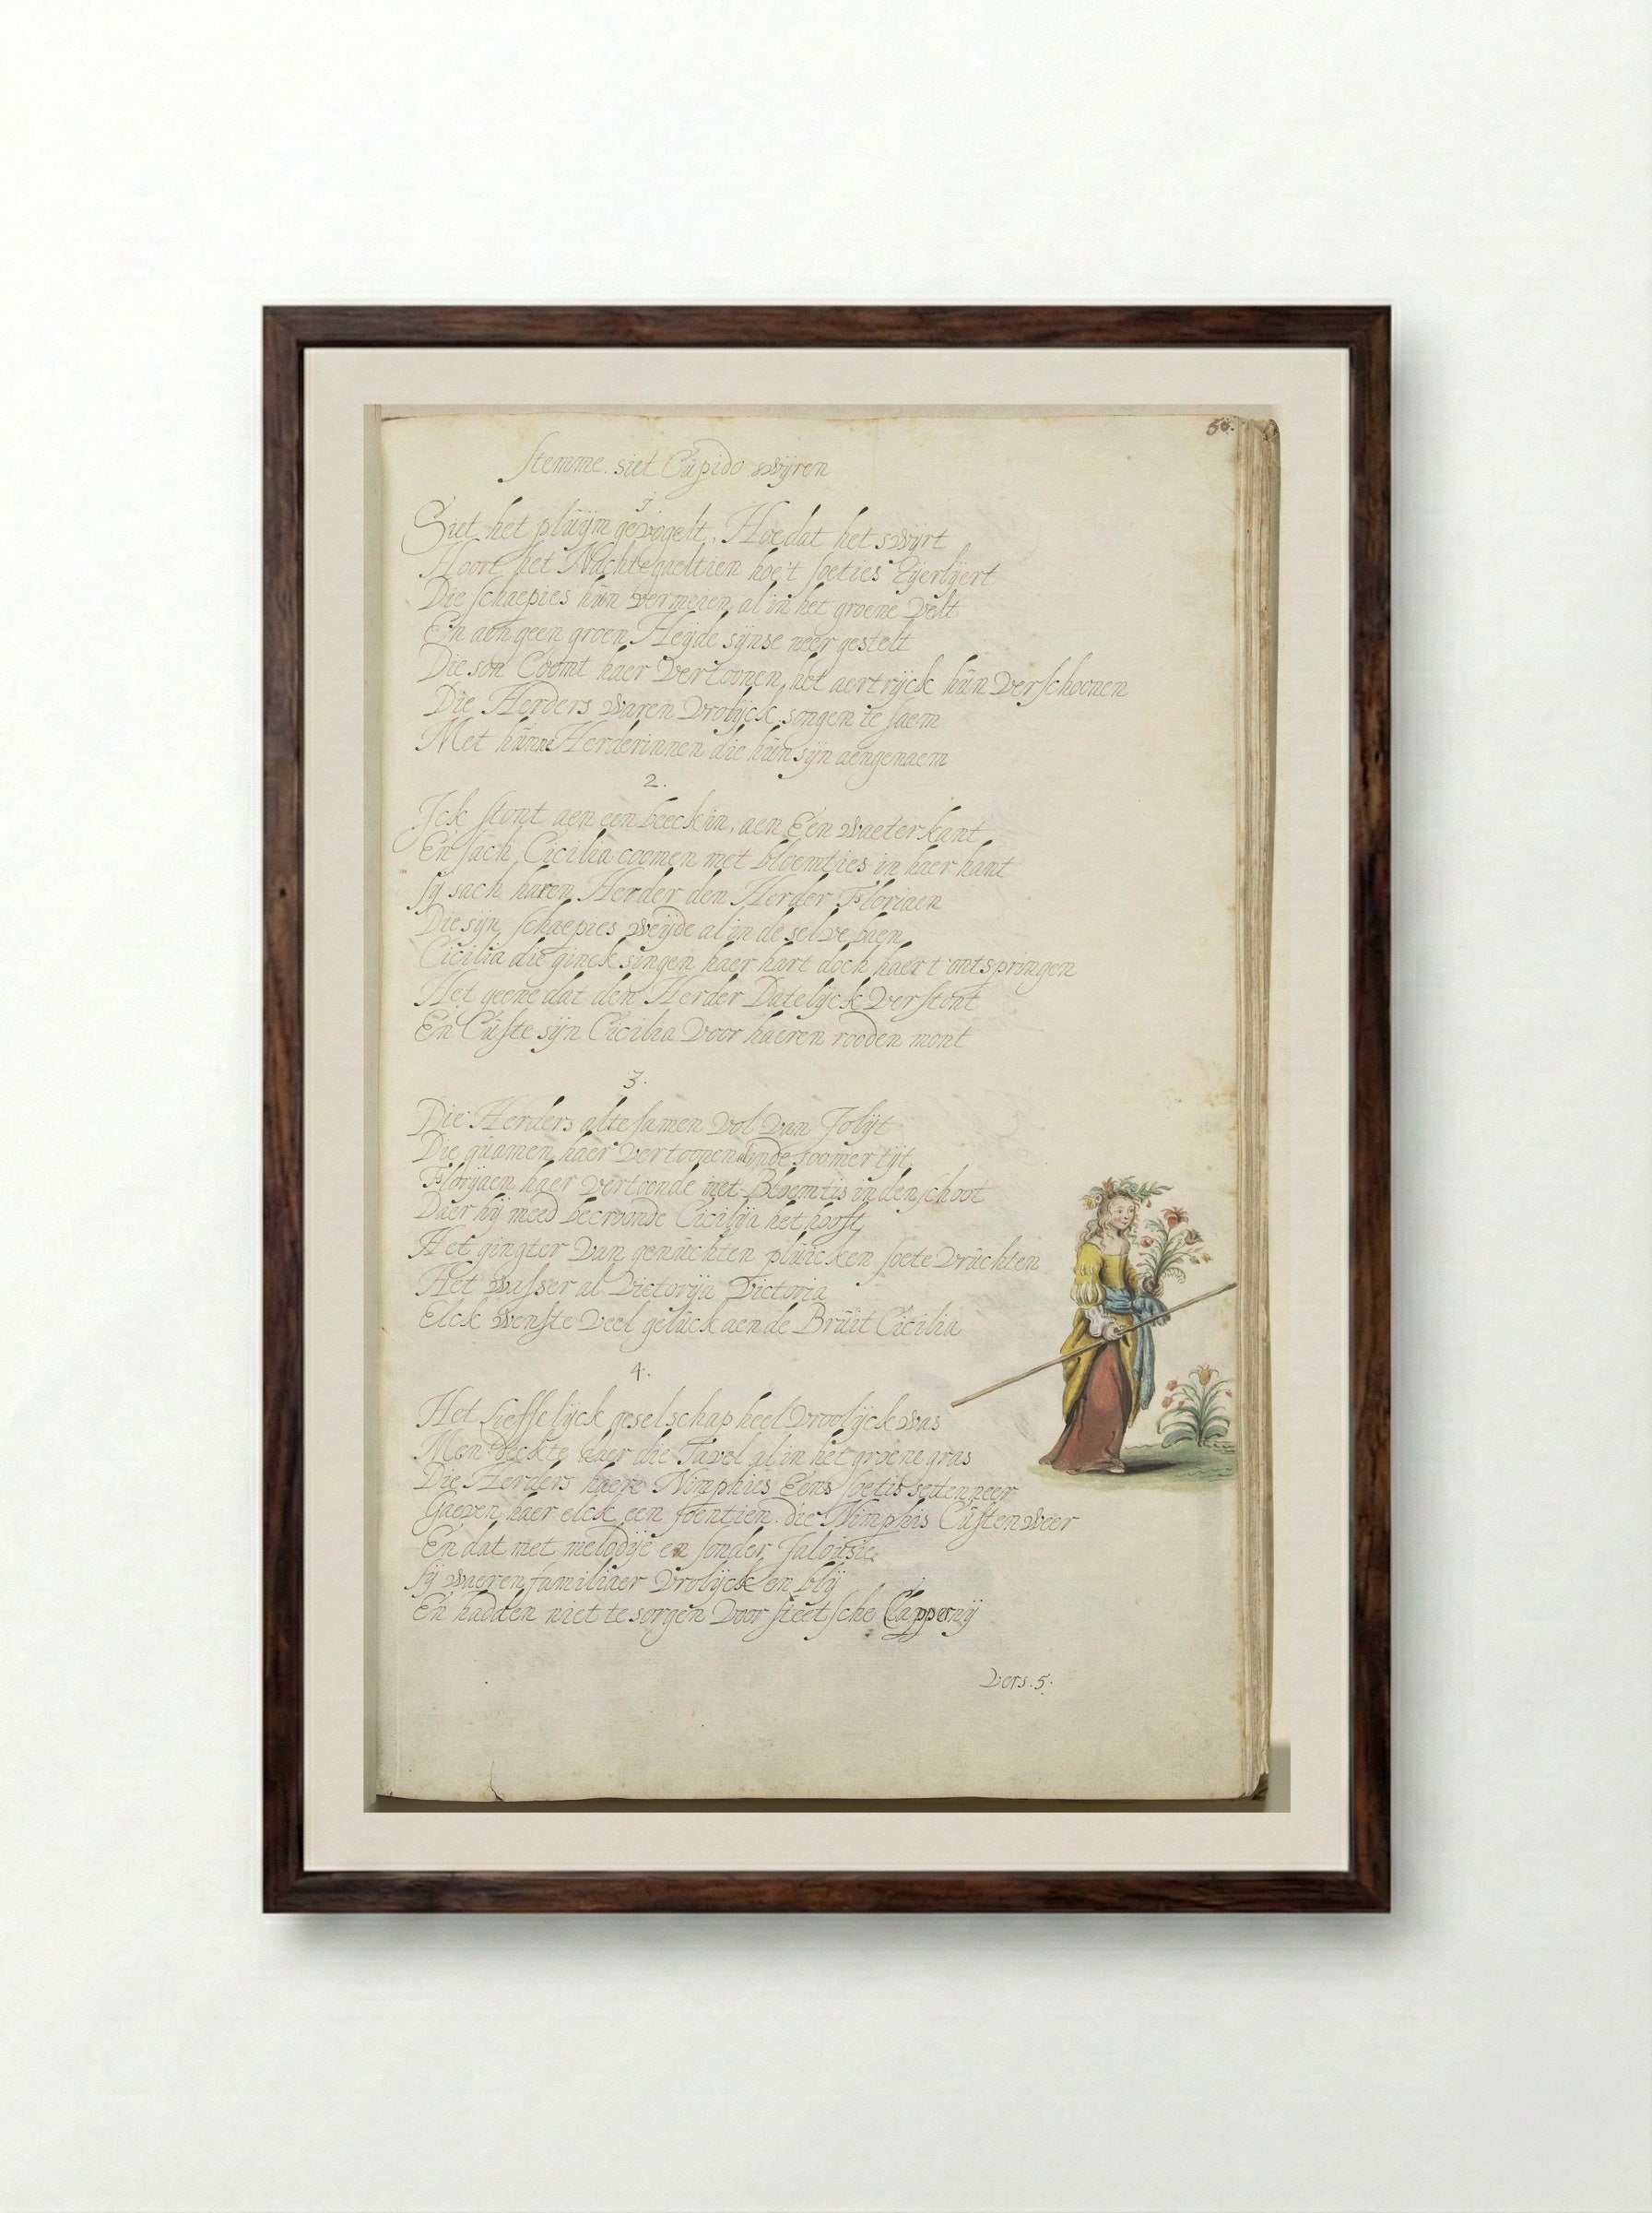 56.
Stemme. siet Cúpido swijren
1
Siet het plúijm gevogelt, Hoe dat het swijrt
Hoort het Nachtegaeltien hoe't soeties tijerlijert
Die schaepies hún vermeien, al in het groene velt
En aen geen groen Heijde sijnse neer gestelt
Die son Coomt haer Vertoonen, het aertrijck hún Verschoonen
Die Herders waren Vrolijck, songen te saem
Met húnne Herderinnen die hún sijn aengenaem
2.
Ick stont aen een beeckin, aen Een waeter kant
En sach Cicilia coomen met bloemties in haer hant
sij sach haren Herder den Herder Floriaen
Die sijn schaepies weijde al in de selve baen
Cicilia die ginck singen haer hart doch haer t'ontspringen
Het geene dat den Herder Datelijck Verstont
En Cúste sijn Cicilia Voor haeren rooden mont
3.
Die Herders altesamen Vol Van Jolijt
Die qúamen haer Vertoonen in de soomer tijt
Florijaen haer vertoonde met Bloemtis in den schoot
Daer hij meed becroonde Cicilija het hooft
Het gingter Van genúchten plúicken soete Vrúchten
Het wasser al Victorija Victoria
Elck wenste Veel gelúck aen de Brúit Cicilia
4.
Het Lieffelijck geselschap heel Vroolijck was
Men deckte haer die Tavel al in het groene gras
Die Herders haere Nimphies Eens soetis seten neer
Gaeven haer elck een soentien. die Nimphis Cústen weer
En dat met melodije en sonder Jaloúsie
sij waeren familiaer Vrolijck en blij
En hadden niet te sorgen Voor steetsche Clappernij
Vers. 5.